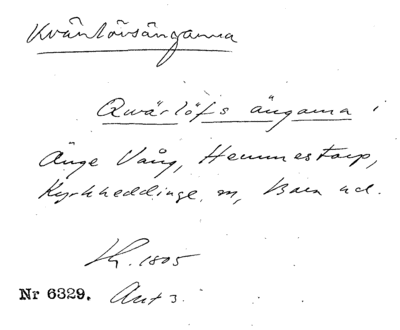 Kvärlövsängarna
Qwärlöfs ängarna i
Änge Vång, Hemmestorp,
Kyrkheddinge, m, Bara hd.
1805
Nr 6329. Akt 3.